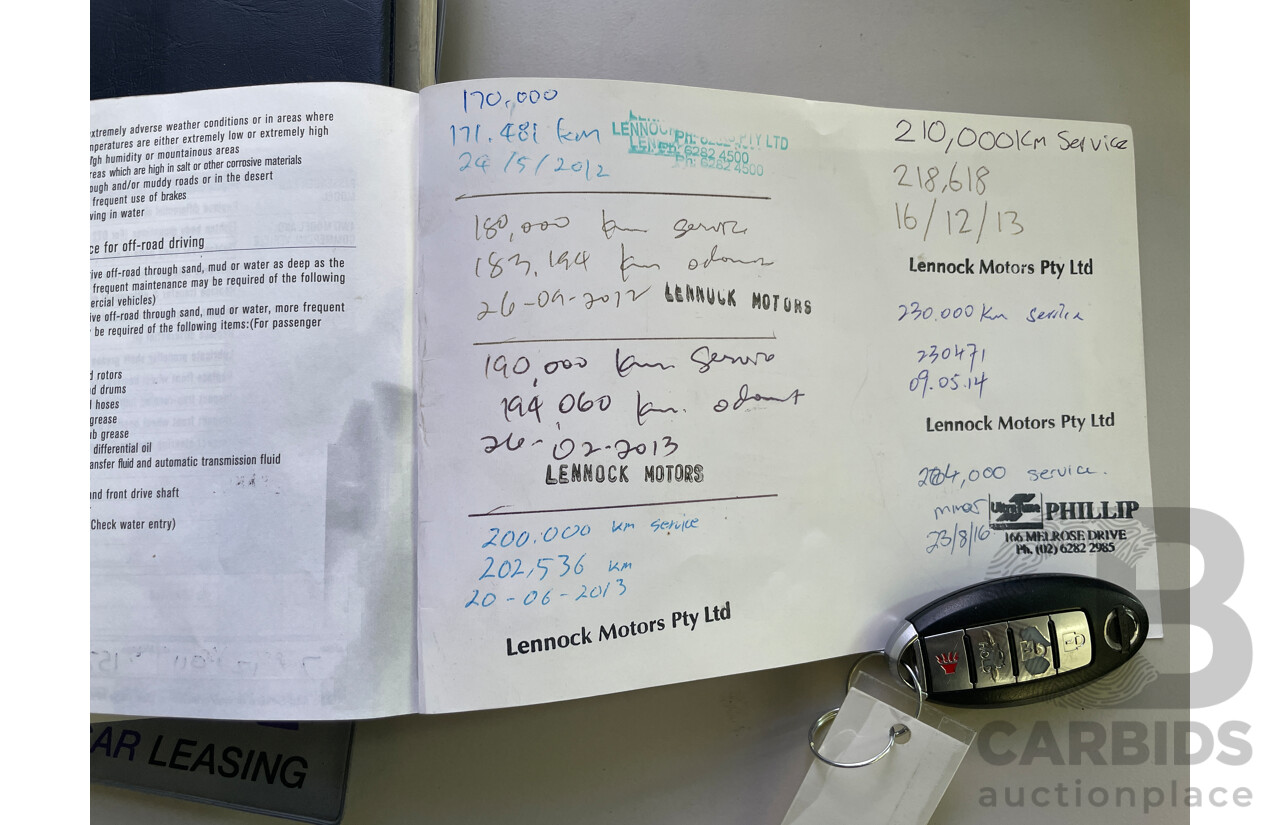 extremely adverse weather conditions or in areas where
mperatures are either extremely low or extremely high
igh humidity or mountainous areas
reas which are high in salt or other corrosive materials
ough and/or muddy roads or in the desert
frequent use of brakes
ving in water
ce for off-road driving
ive off-road through sand, mud or water as deep as the
frequent maintenance may be required of the following
ercial vehicles)
ive off-road through sand, mud or water, more frequent
be required of the following items:(For passenger
d rotors
d drums
l hoses
grease
ub grease
differential oil
ansfer fluid and automatic transmission fluid
and front drive shaft
Check water entry)
AR LEASING
170,000
171.481 km
24/5/2012
LENNOCK
PTY LTD
Ph: 6282 4500
180,000 km service
183,194 km odomt
26-09-2012 LENNOCK MOTORS
190,000 km Service
194,060 km. odomt
26-02-2013
LENNOCK MOTORS
200.000 km service
202,536 km
20-06-2013
Lennock Motors Pty Ltd
210,000km Service
218,618
16/12/13
Lennock Motors Pty Ltd
230.000 Km service
230471
09.05.14
Lennock Motors Pty Ltd
000 service.
minor
23/8/16
Ultra Tune PHILLIP
166 MELROSE DRIVE
Ph. (02) 6282 2985
HOLD
CARBIDS
auctionplace